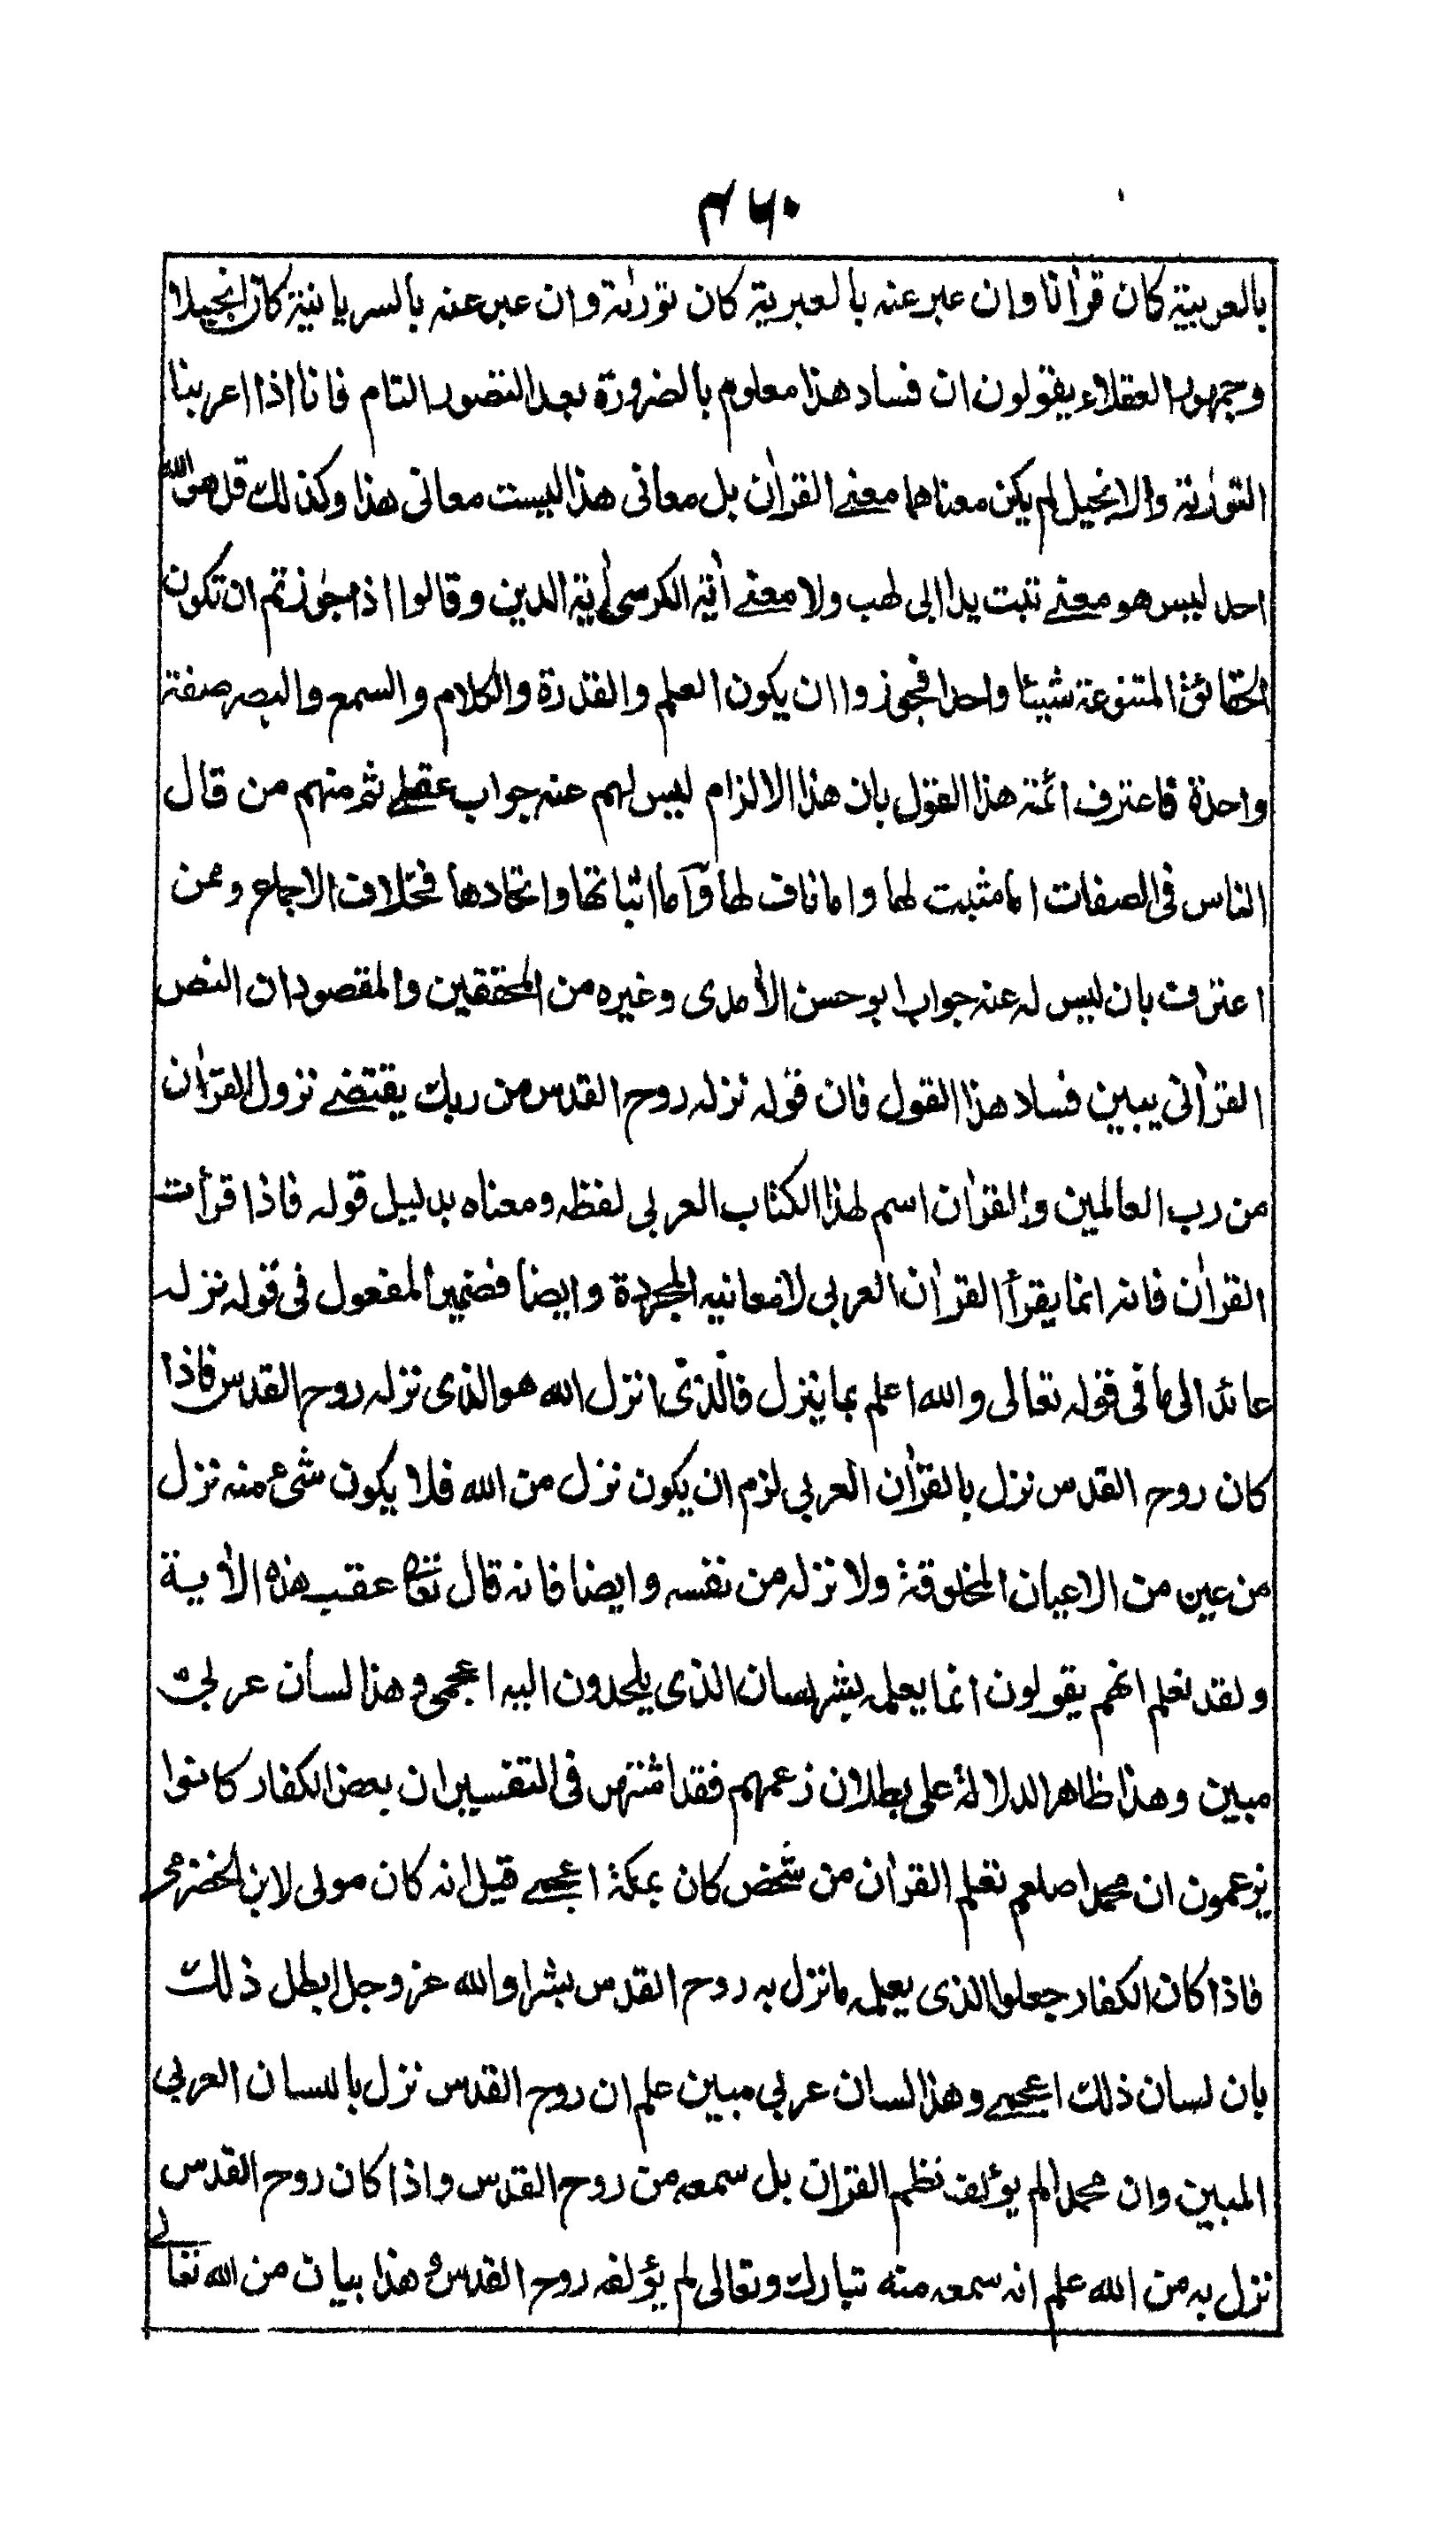 ۴۶۰
بالعربية كان قرأنا وان عبر عنه بالعبرية كان تورٰىة وان عبر عنه بالسريانية كان انجيلا
وجمهور العقلاء يقولون ان فساد هذا معلوم بالضرورة بعد التصور التام فانا اذا اعربنا
التورٰىة والانجيل لم يكن معناهما معنے القرأن بل معانى هذا ليست معانى هذا وكذلك قل هو الله
احد ليس هو معنے تبت يدا ابى لهب ولا معنے أية الكرسى أية الدين وقالوا اذا جوزتم ان تكون
الحقائق المتنوعة شيئا واحدا فجوزوا ان يكون العلم والقدرة والكلام والسمع والبصر صفة
واحدة فاعترف ائمة هذا القول بان هذا الالزام ليس لهم عنه جواب عقلے ثم منهم من قال
الناس فى الصفات اما مثبت لها واما ناف لها وأما اثباتها واتحادها فخلاف الاجماع وممن
اعترف بان ليس له عنه جواب ابو حسن الأمدى وغيره من المحققين والمقصود ان النص
القرأنى يبين فساد هذا القول فان قوله نزله روح القدس من ربك يقتضے نزول القرأن
من رب العالمين والقرأن اسم لهذا الكتاب العربى لفظه ومعناه بدليل قوله فاذا قرأت
القرأن فانه انما يقرأ القرأن العربى لا معانيه المجردة وايضا فضمير المفعول فى قوله نزله
عائد الى ما فى قوله تعالى والله اعلم بما ينزل فالذى انزل الله هو الذى نزله روح القدس فاذا
كان روح القدس نزل بالقرأن العربى لزم ان يكون نزل من الله فلا يكون شىء منه نزل
من عين من الاعيان المخلوقة ولا نزله من نفسه وايضا فانه قال تعالى عقب هذه الأية
ولقد نعلم انهم يقولون انما يعلمه بشر لسان الذى يلحدون اليه اعجمى وهذا لسان عربى
مبين وهذا ظاهر الدلالة على بطلان زعمهم فقد اشتهر فى التفسير ان بعض الكفار كانوا
يزعمون ان محمدا صلعم تعلم القرأن من شخص كان بمكة اعجمے قيل انه كان مولى لابن الحضرمى
فاذا كان الكفار جعلوا الذى يعلمه ما نزل به روح القدس بشرا والله عز وجل ابطل ذلك
بان لسان ذلك اعجمے وهذا لسان عربى مبين علم ان روح القدس نزل باللسان العربى
المبين وان محمدا لم يؤلف نظم القرأن بل سمعه من روح القدس واذا كان روح القدس
نزل به من الله علم انه سمعه منه تبارك وتعالى لم يؤلفه روح القدس وهذا بيان من الله تعالى